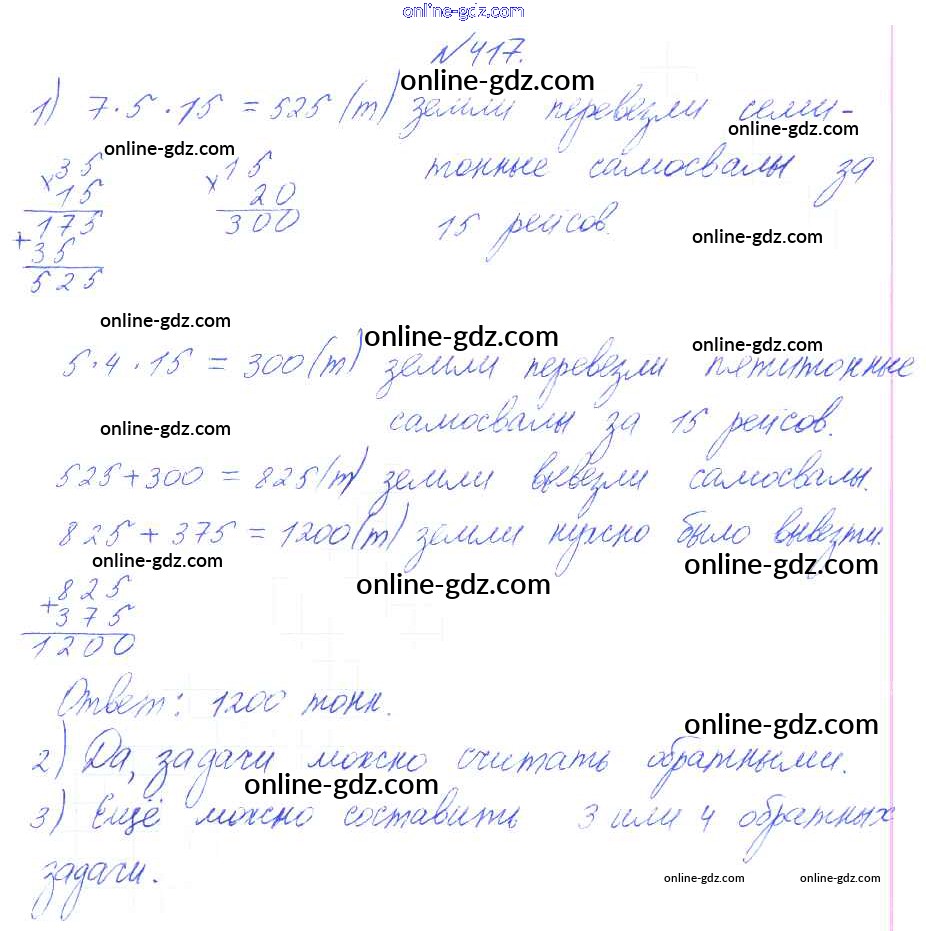 online-gdz.com
№417.
online-gdz.com
1) 7·5·15 = 525 (т) земли перевезли семи-
online-gdz.com
online-gdz.com
×35 ×15 тонные самосвалы за
15 20
175 300 15 рейсов.
online-gdz.com
+35
525
online-gdz.com
online-gdz.com
online-gdz.com
5·4·15 = 300 (т) земли перевезли пятитонные
online-gdz.com
самосвалы за 15 рейсов.
525+300 = 825 (т) земли вывезли самосвалы.
825+375 = 1200 (т) земли нужно было вывезти.
online-gdz.com
online-gdz.com
online-gdz.com
825
+375
1200
Ответ: 1200 тонн.
online-gdz.com
2) Да, задачи можно считать обратными.
online-gdz.com
3) Ещё можно составить 3 или 4 обратных
задачи.
online-gdz.com online-gdz.com